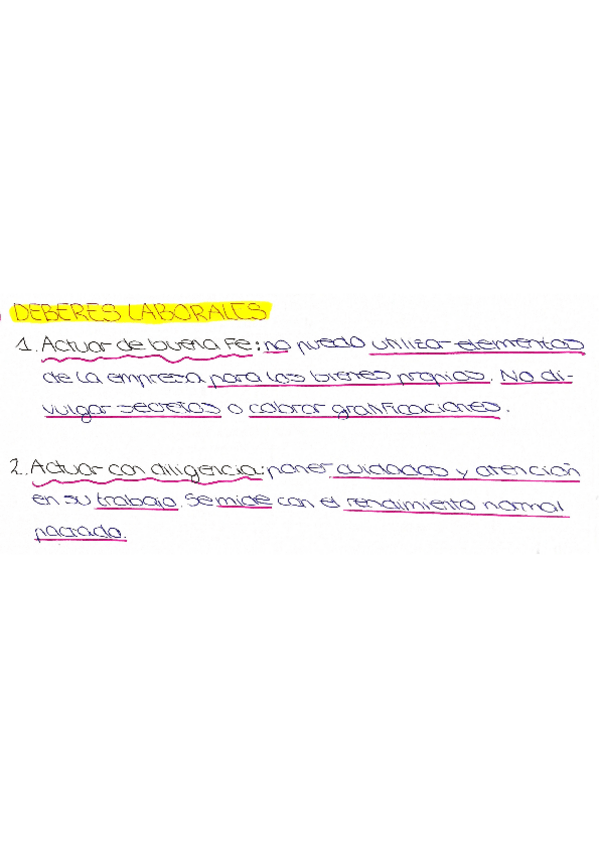 DEBERES LABORALES
1. Actuar de buena Fe: no puedo utilizar elementos
de la empresa para los bienes propios. No di-
vulgar secretos o cobrar gratificaciones.
2. Actuar con diligencia: poner cuidados y atención
en su trabajo. Se mide con el rendimiento normal
pactado.